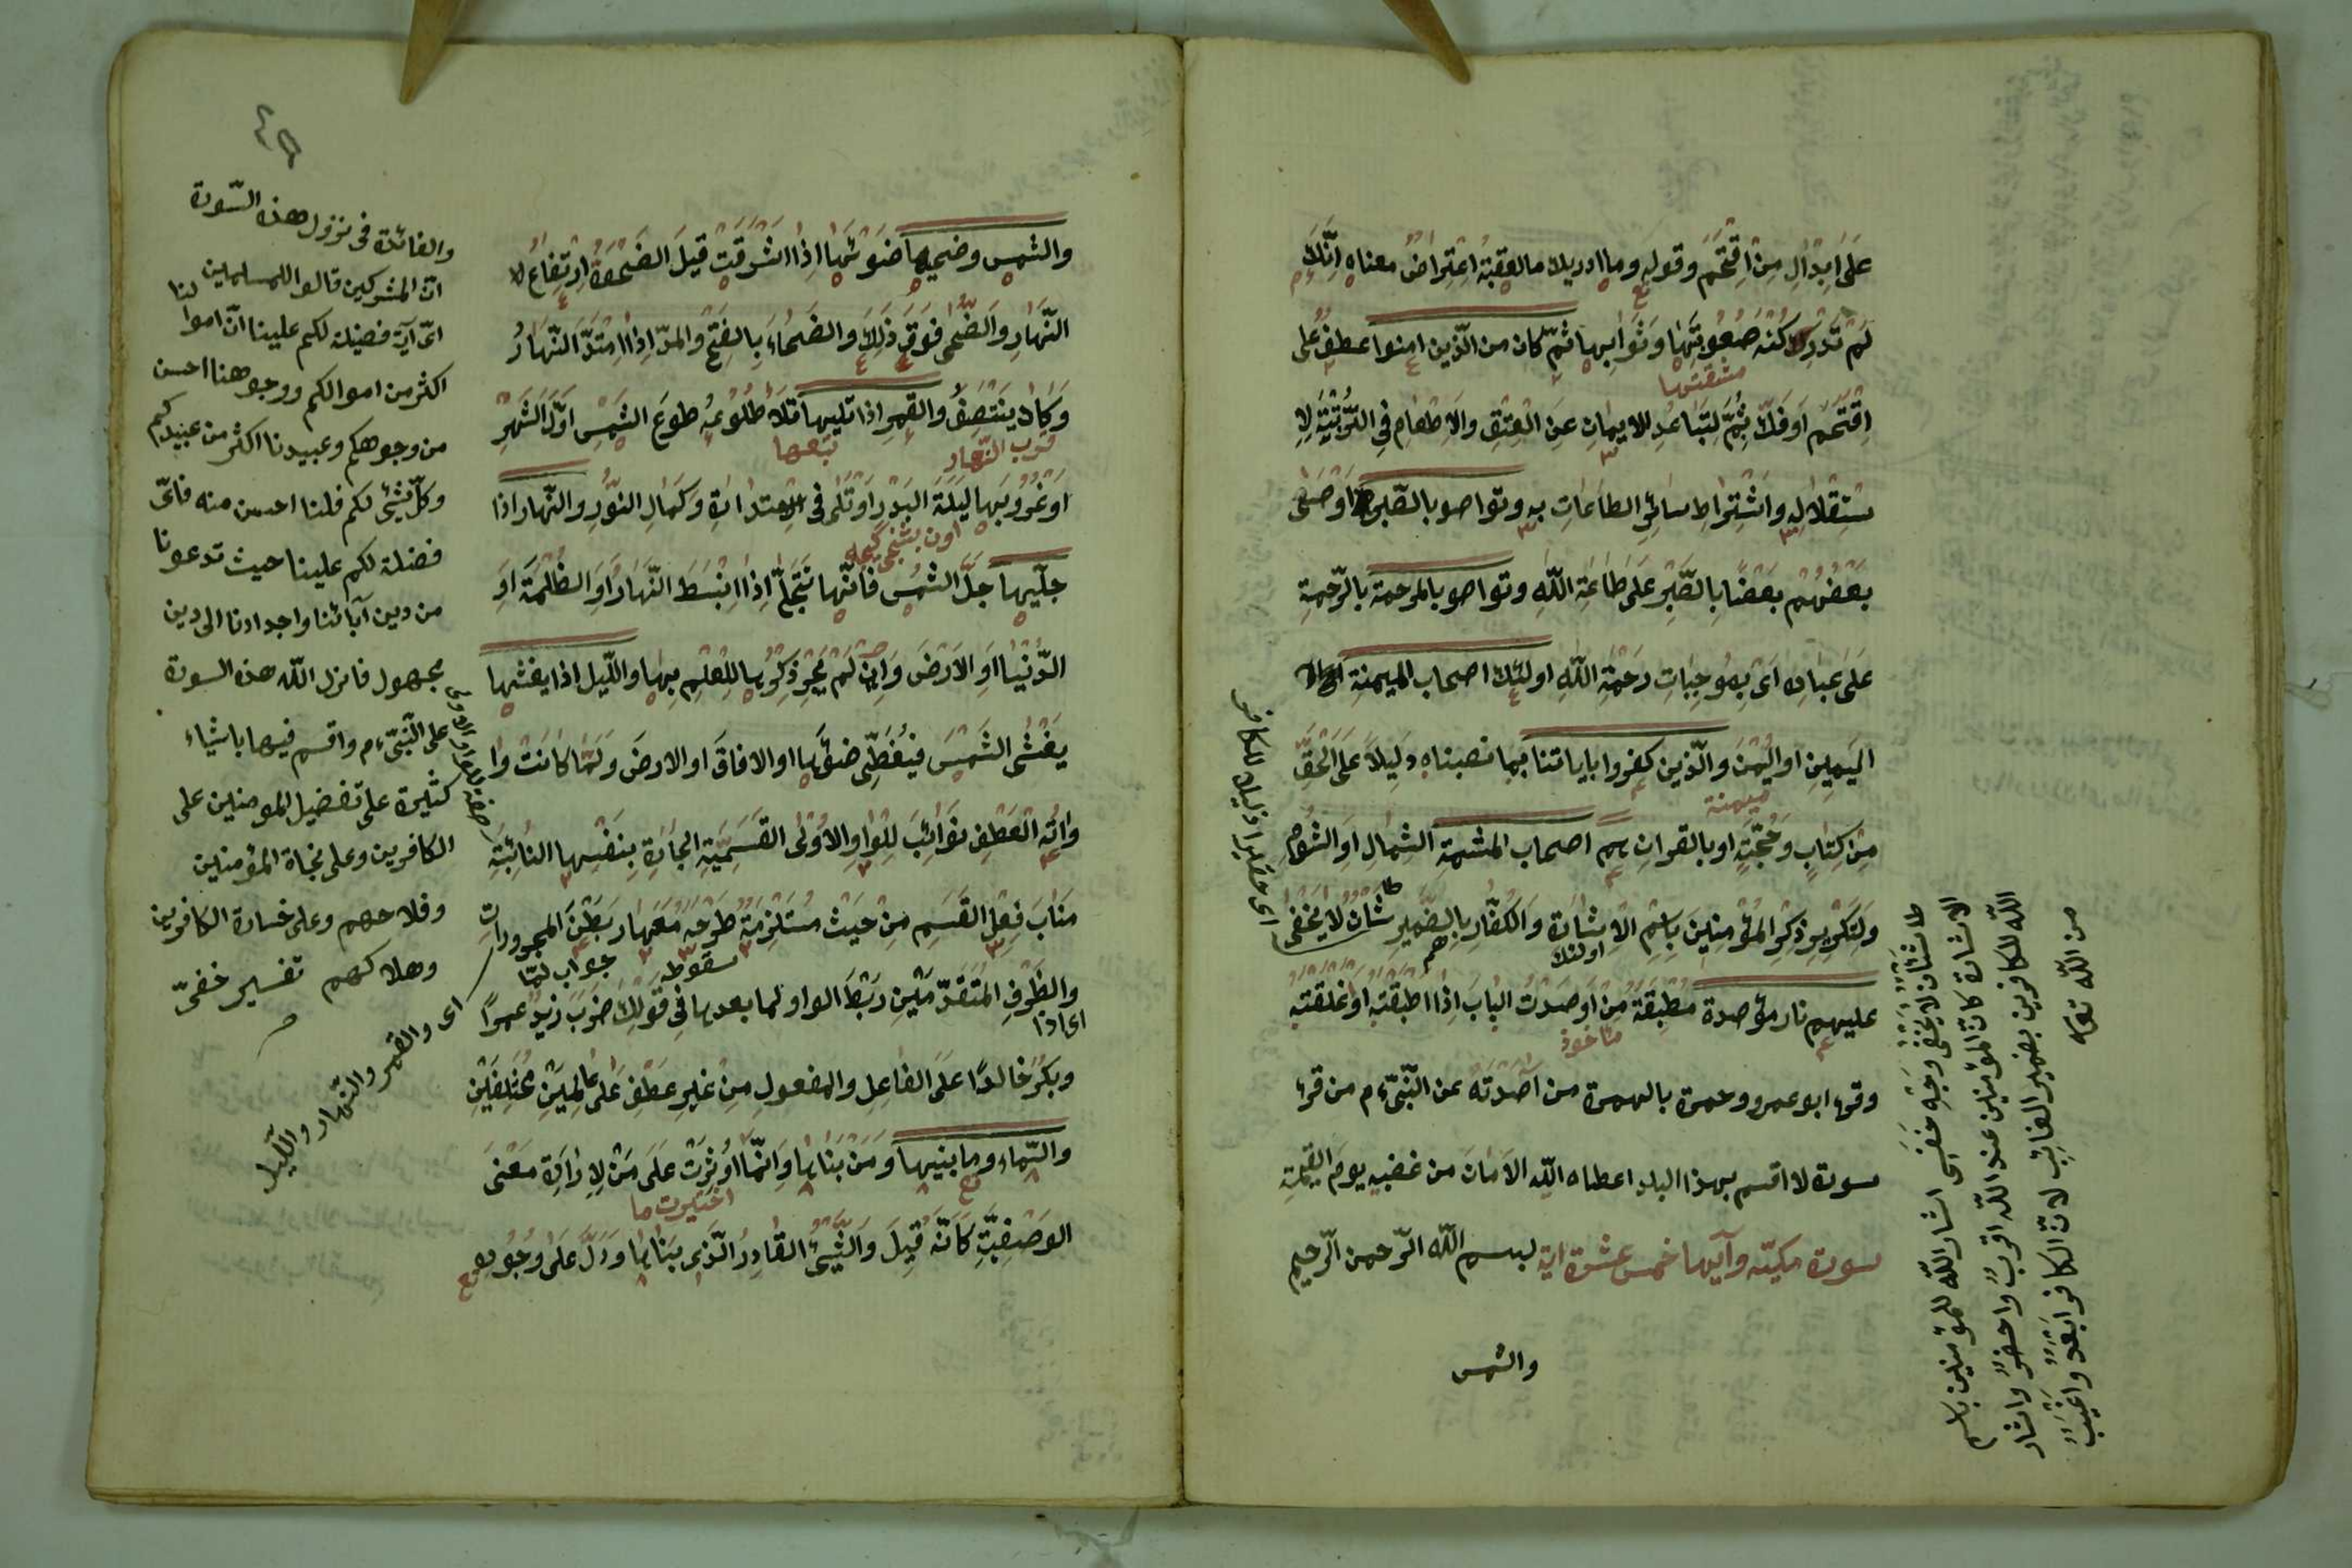 على ابدال من اقتحم وقوله وما ادريك ما العقبة اعتراض معناه انك
لم تدر كنه صعوبتها وثوابها ثم كان من الذين امنوا عطف على
مشقتها
اقتحم او فك بثم لتباعد الايمان عن العتق والاطعام في الرتبة لا
ستقلاله واشتراط سائر الطاعات به وتواصوا بالصبر اوصى
بعضهم بعضا بالصبر على طاعة الله وتواصوا بالمرحمة بالرحمة
على عباده اى بموجبات رحمة الله اولئك اصحاب الميمنة
اليمين او اليمن والذين كفروا باياتنا بما نصبناه دليلا على الحق
ميمنة
من كتاب وحجة او بالقران هم اصحاب المشئمة الشمال او الشوم
ولتكرير ذكر المؤمنين باسم الاشارة والكفار بالضمير شان لا يخفى
اولئك
هم
عليهم نار مؤصدة مطبقة من اوصدت الباب اذا اطبقته او غلقته
مأخوذ
وقرء ابو عمرو وحمزة بالهمزة من آصدته عن النبى ءم من قرء
سورة لا اقسم بهذا البلد اعطاه الله الامان من غضبه يوم القيمة
سورة مكية وآيها خمس عشرة اية بسم الله الرحمن الرحيم
والشمس
شان لا يخفى وجه خفى اشار الله للمؤمنين باسم
الاشارة كان المؤمنين عند الله اقرب واحضر واشار
الله للكافرين بضمير الغائب لان الكافر ابعد واغيب
من الله تعه
والشمس وضحيها ضوئها اذا اشرقت قيل الضحوة ارتفاع لا
النهار والضحى فوق ذلك والضحاء بالفتح والمد اذا امتد النهار
وكاد ينتصف والقمر اذا تليها تلا طلوعه طلوع الشمس اول الشهر
قرب النهار
تبعها
او غروبها ليلة البدر او تلى في الاستدارة وكمال النور والنهار اذا
اون بشنجى كيجه
جليها جلى الشمس فانها تتجلى اذا انبسط النهار او الظلمة او
الدنيا او الارض وان لم يجر ذكرها للعلم بها والليل اذا يغشيها
يغشى الشمس فيغطى ضوئها او الافاق او الارض ولما كانت وا
واته العطف نوائب للواو الاولى القسمية الجارة بنفسها النائبة
مناب فعل القسم من حيث مستلزمة طرحه معها ربطن المجرورات
سقوطه
جواب لما
والظرف المتقدمين ربط الواو لما بعدها في قولك ضرب زيد عمرا
اى اذا
وبكر خالدا على الفاعل والمفعول من غير عطف على عاملين مختلفين
والسماء وما بنيها ومن بناها وانما اوثرت على من لارادة معنى
اختيرت ما
الوصفية كانه قيل والشيء القادر الذى بناها ودل على وجوده
والفائدة في نزول هذه السورة
ان المشركين قالوا للمسلمين لنا
اى آية فضيلة لكم علينا ان اموا
اكثر من اموالكم ووجوهنا احسن
من وجوهكم وعبيدنا اكثر من عبيدكم
وكل شئ لكم فلنا احسن منه فاى
فضيلة لكم علينا حيث تدعونا
من دين آبائنا واجدادنا الى دين
مجهول فانزل الله هذه السورة
على النبى ءم واقسم فيها باشياء
كثيرة على تفضيل المومنين على
الكافرين وعلى نجاة المؤمنين
وفلاحهم وعلى خسارة الكافرين
وهلاكهم تفسير خفى
اى والقمر والنهار والليل